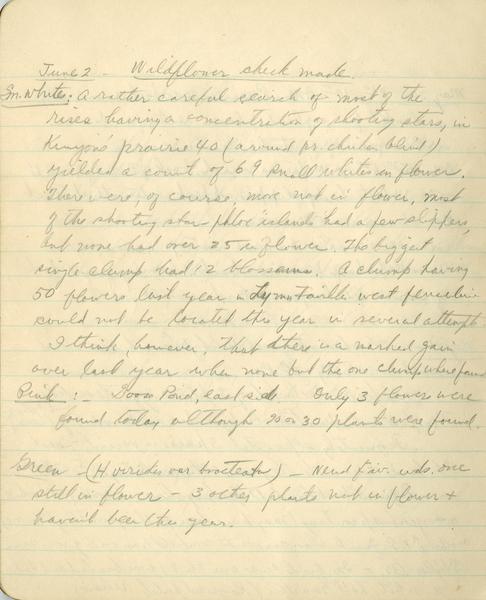 June 2 - Wildflower check made.
Sm. White: A rather careful search of most of the
rises having a concentration of shooting stars, in
Kenyon's prairie 40 (around pr. chicken blind)
yielded a count of 69 small whites in flower.
There were, of course, more not in flower, most
of the shooting star-phlox islands had a few slippers,
but none had over 25 in flower. The biggest
single clump had 12 blossoms. A clump having
50 flowers last year in Faville west
could not be located this year in several attempts
I think, however, that there is a marked gain
over last year when none but the one clump where found
Pink: - Goose Pond, east side Only 3 flowers were
found today although 20 or 30 plants were found.
Green - (H. virides var bracteatus) - wds. one
still in flower - 3 other plants not in flower &
haven't been this year.